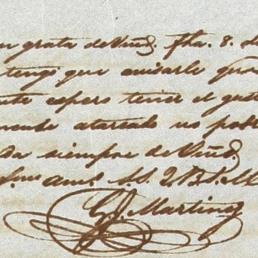 grata de Vmd fha. 8.
tengo que avisarle que
espero tener el gus
atareado no pod
da siempre de Vmd.
am. SS. Q. B. S. M.
G. Martinez